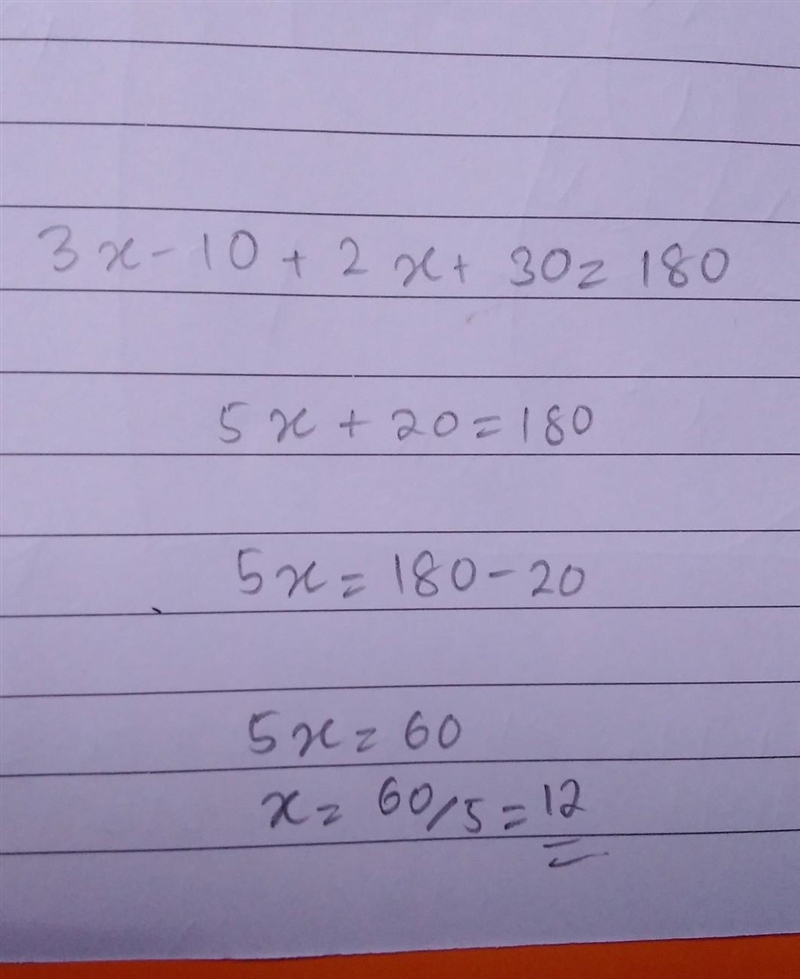 3x-10+2x+30=180
5x+20=180
5x=180-20
5x=60
x=60/5=12